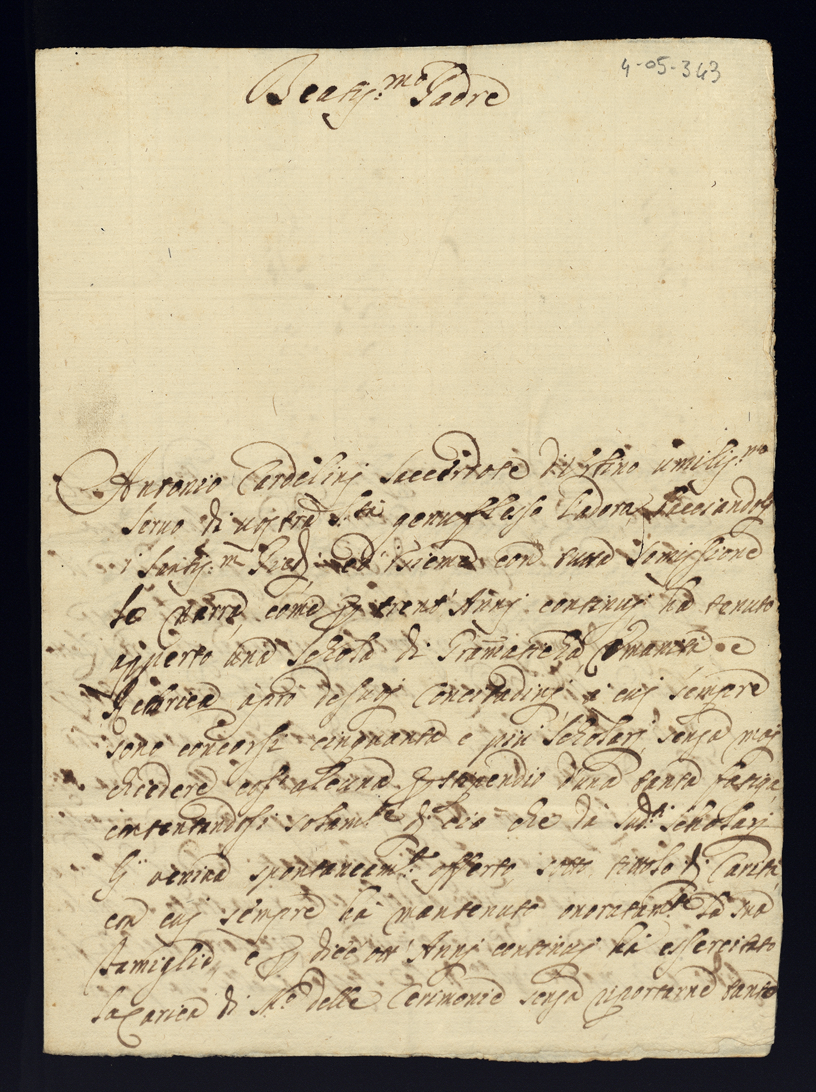 4-05-343
Beatis.mo Padre
Antonio Cardelinj Saccerdote umilis.mo
seruo di uostra S.tà genuflesso l'adora,
i Santis.mi Piedi ed insiemè con tutta somissione
narra, comè trent'Annj continuj ha tenuto
apperto una Schola di Grammaticha, Vmanità e
Rettorica apro de suoj Concitadinj, a cuj sempre
sono concorsi cinquanta e più Scholarj, senza maj
chiedere cos'alcuna stipendio d'una tanta fatiga,
contentandosi solam.te di ciò che da sud.ti Scholarj
gli veniua spontaneam.te offerto sotto titolo di Carità,
con cuj sempre ha mantenuto onoratam.te la sua
famiglia, e diec'ott'Annj continuj ha essercitato
la Carica di M.ro delle Cerimonie senza riportarne